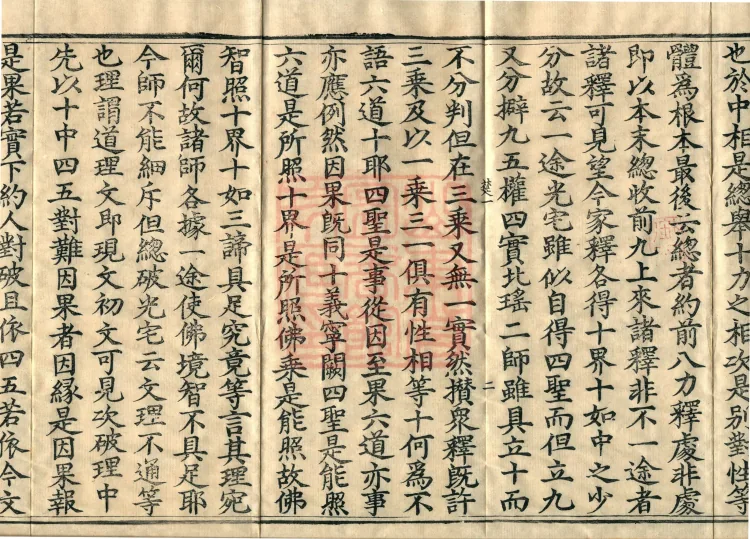 也於中相是總舉十力之相次是別對性等
體為根本最後云總者約前八力釋處非處
即以本末總收前九上來諸釋非不一途者
諸釋可見望今家釋各得十界十如中之少
分故云一途光宅雖似自得四聖而但立九
又分擗九五權四實北瑤二師雖具立十而
二
不分判但在三乘又無一實然攢衆釋既許
三乘及以一乘三一俱有性相等十何為不
語六道十耶四聖是事從因至果六道亦事
亦應例然因果既同十義寧闕四聖是能照
六道是所照十界是所照佛乘是能照故佛
智照十界十如三諦具足究竟等言其理宛
爾何故諸師各據一途使佛境智不具足耶
今師不能細斥但總破光宅云文理不通等
也理謂道理文即現文初文可見次破理中
先以十中四五對難因果者因緣是因果報
是果若實下約人對破且依四五若依今文